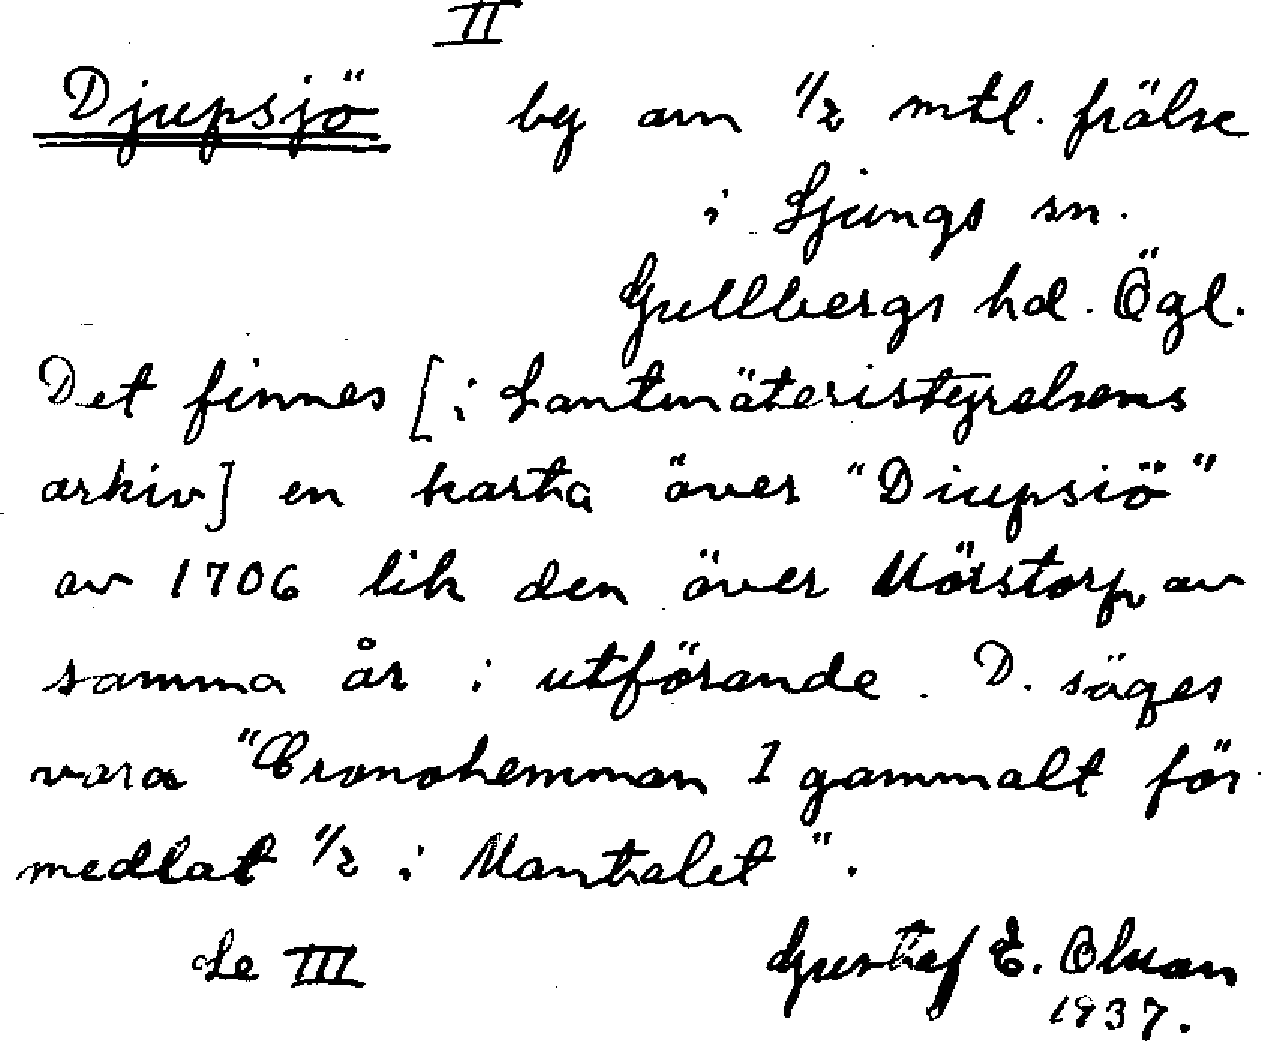 II
Djupsjö by om 1/2 mtl. frälse
i Ljungs sn.
Gullbergs hd. Ögl.
Det finnes [i Lantmäteristyrelsens
arkiv] en karta över "Diupsiö"
av 1706 lik den över Mörstorp av
samma år i utförande. D. säges
vara "Cronohemman 1 gammalt för
medlat 1/2 i Mantalet".
Se III Gustaf E. Olsson
1937.